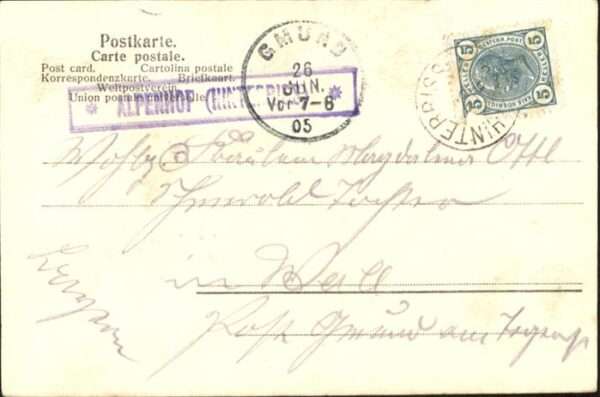 Postkarte.
Carte postale.
Post card. Cartolina postale
Korrespondenzkarte. Briefkaart.
Weltpostverein
Union postale universelle.
* ALPENHOF (HINTERRISS) *
GMUND
26
JUN.
Vor 7-8
05
HINTERRISS
5 5
5 5
Wohlg. Fräulein Magdalena Ottl
in Wall
Post Gmund am Tegernsee
Bayern